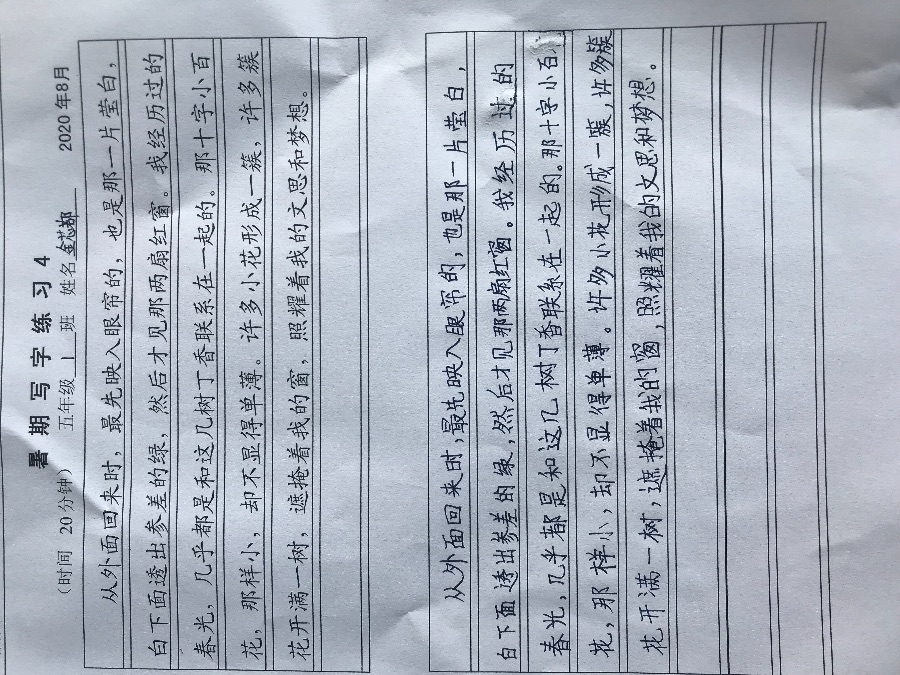 暑期写字练习4
（时间 20分钟） 五年级 1 班 姓名 2020年8月
从外面回来时，最先映入眼帘的，也是那一片莹白，
白下面透出参差的绿，然后才见那两扇红窗。我经历过的
春光，几乎都是和这几树丁香联系在一起的。那十字小百
花，那样小，却不显得单薄。许多小花形成一簇，许多簇
花开满一树，遮掩着我的窗，照耀着我的文思和梦想。
从外面回来时，最先映入眼帘的，也是那一片莹白，
白下面透出参差的绿，然后才见那两扇红窗。我经历过的
春光，几乎都是和这几树丁香联系在一起的。那十字小百
花，那样小，却不显得单薄。许多小花形成一簇，许多簇
花开满一树，遮掩着我的窗，照耀着我的文思和梦想。